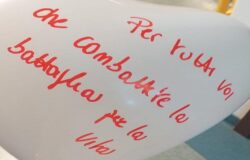 Per tutti voi
che combattete la
battaglia per la
vita